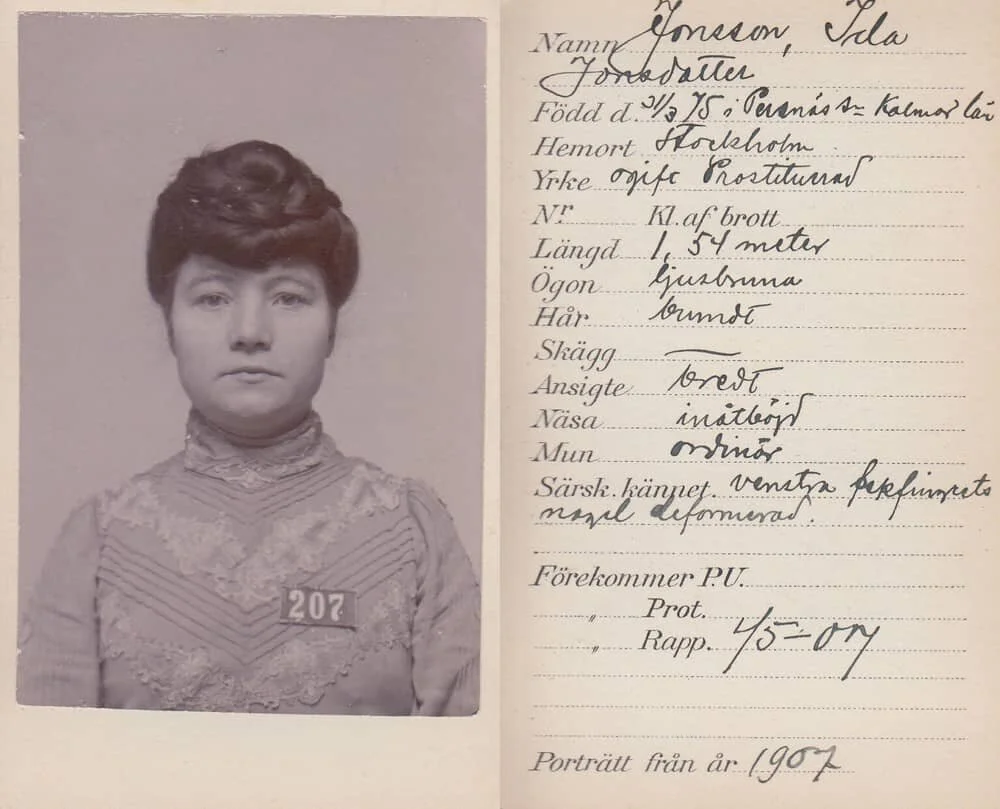 207
Namn Jonsson, Ida
Jonsdotter
Född d. 31/3 75 i Persnäs sn Kalmar län
Hemort Stockholm
Yrke ogift Prostituerad
Nr Kl. af brott
Längd 1,54 meter
Ögon ljusbruna
Hår brundt
Skägg —
Ansigte bredt
Näsa inåtböjd
Mun ordinär
Särsk. kännet. venstra pekfingrets
nagel deformerad.
Förekommer P.U.
„ Prot.
„ Rapp. 4/5 - 07
Porträtt från år 1907